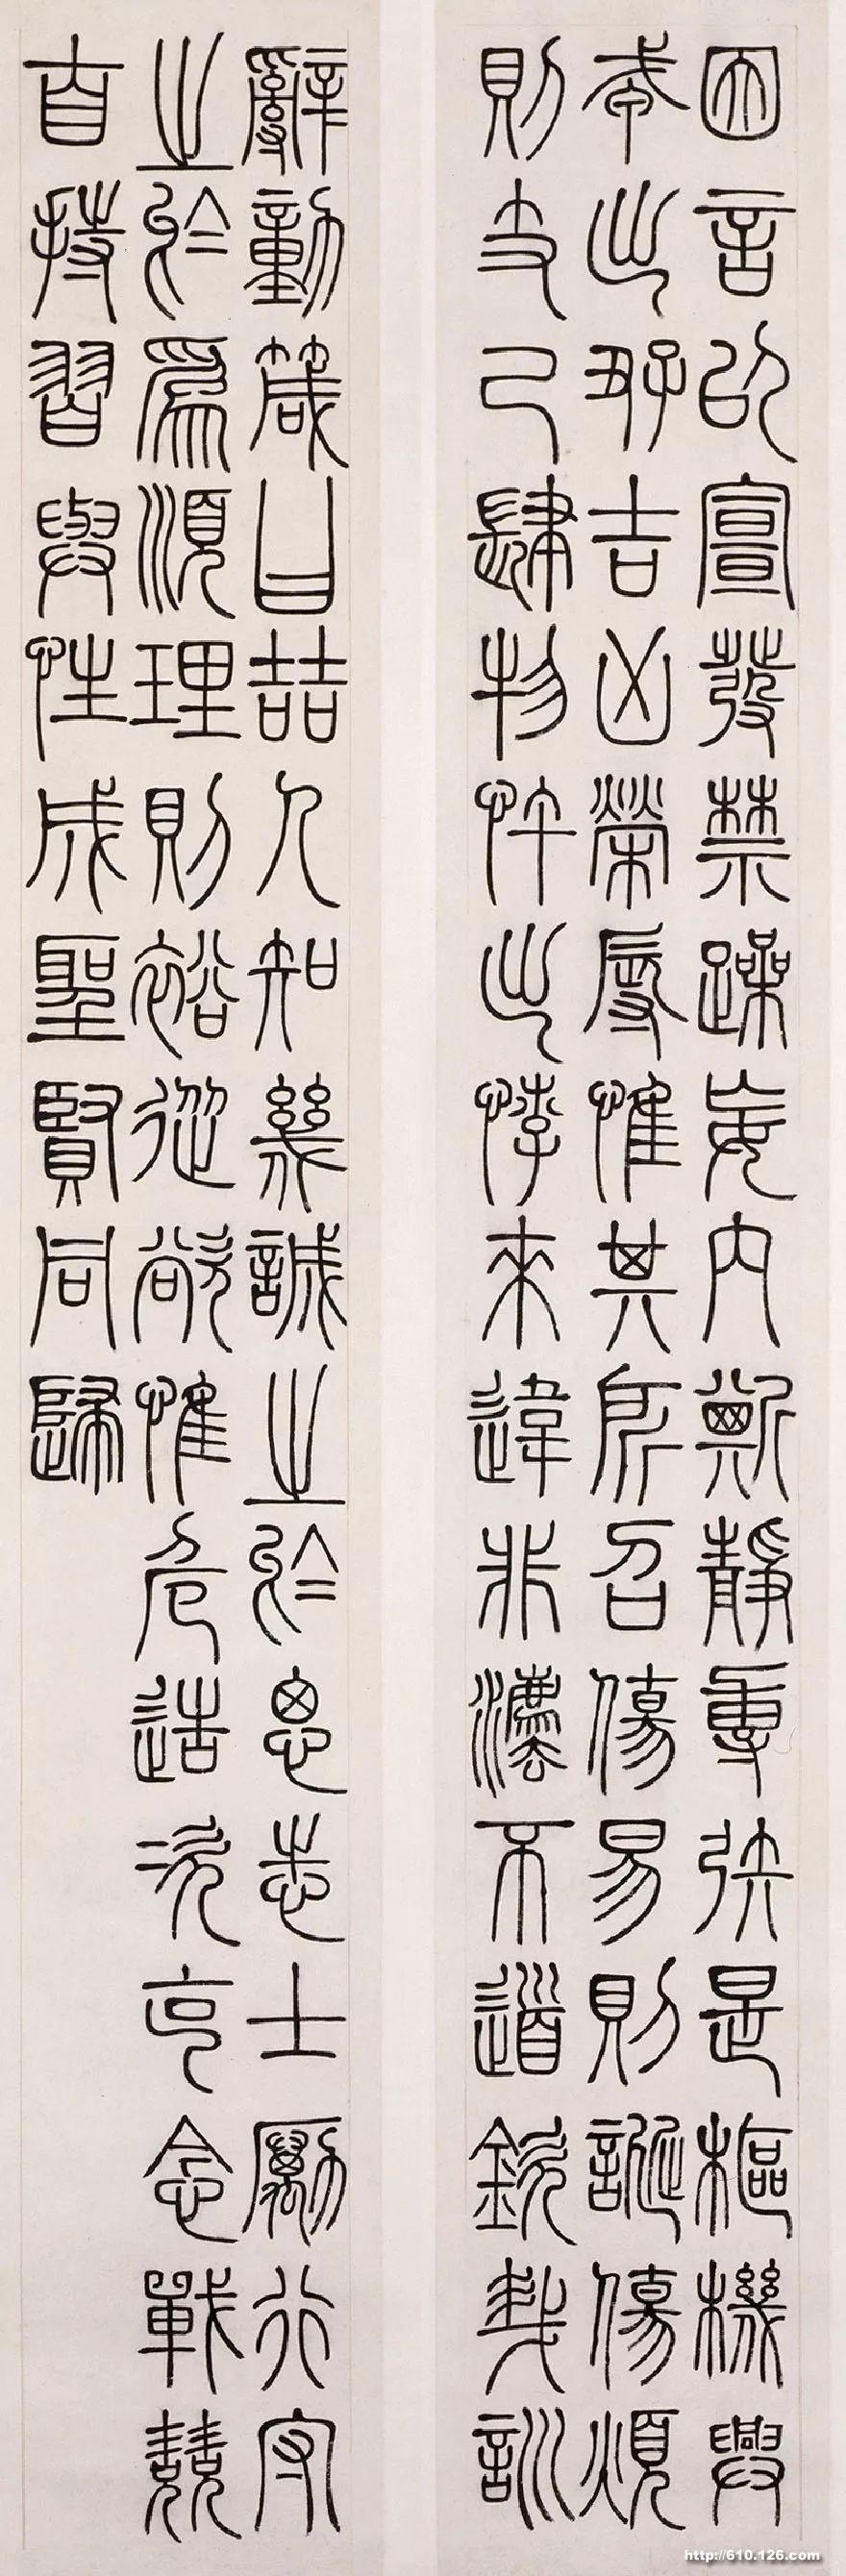 因言以宣發禁躁妄內斯靜專矧是樞機興
戎出好吉凶榮辱惟其所召傷易則誕傷煩
則支己肆物忤出悖來違非灋不道欽哉訓
辭動箴曰喆人知幾誠之於思志士勵行守
之於為順理則裕從欲惟危造次克念戰兢
自持習與性成聖賢同歸
http://610.126.com